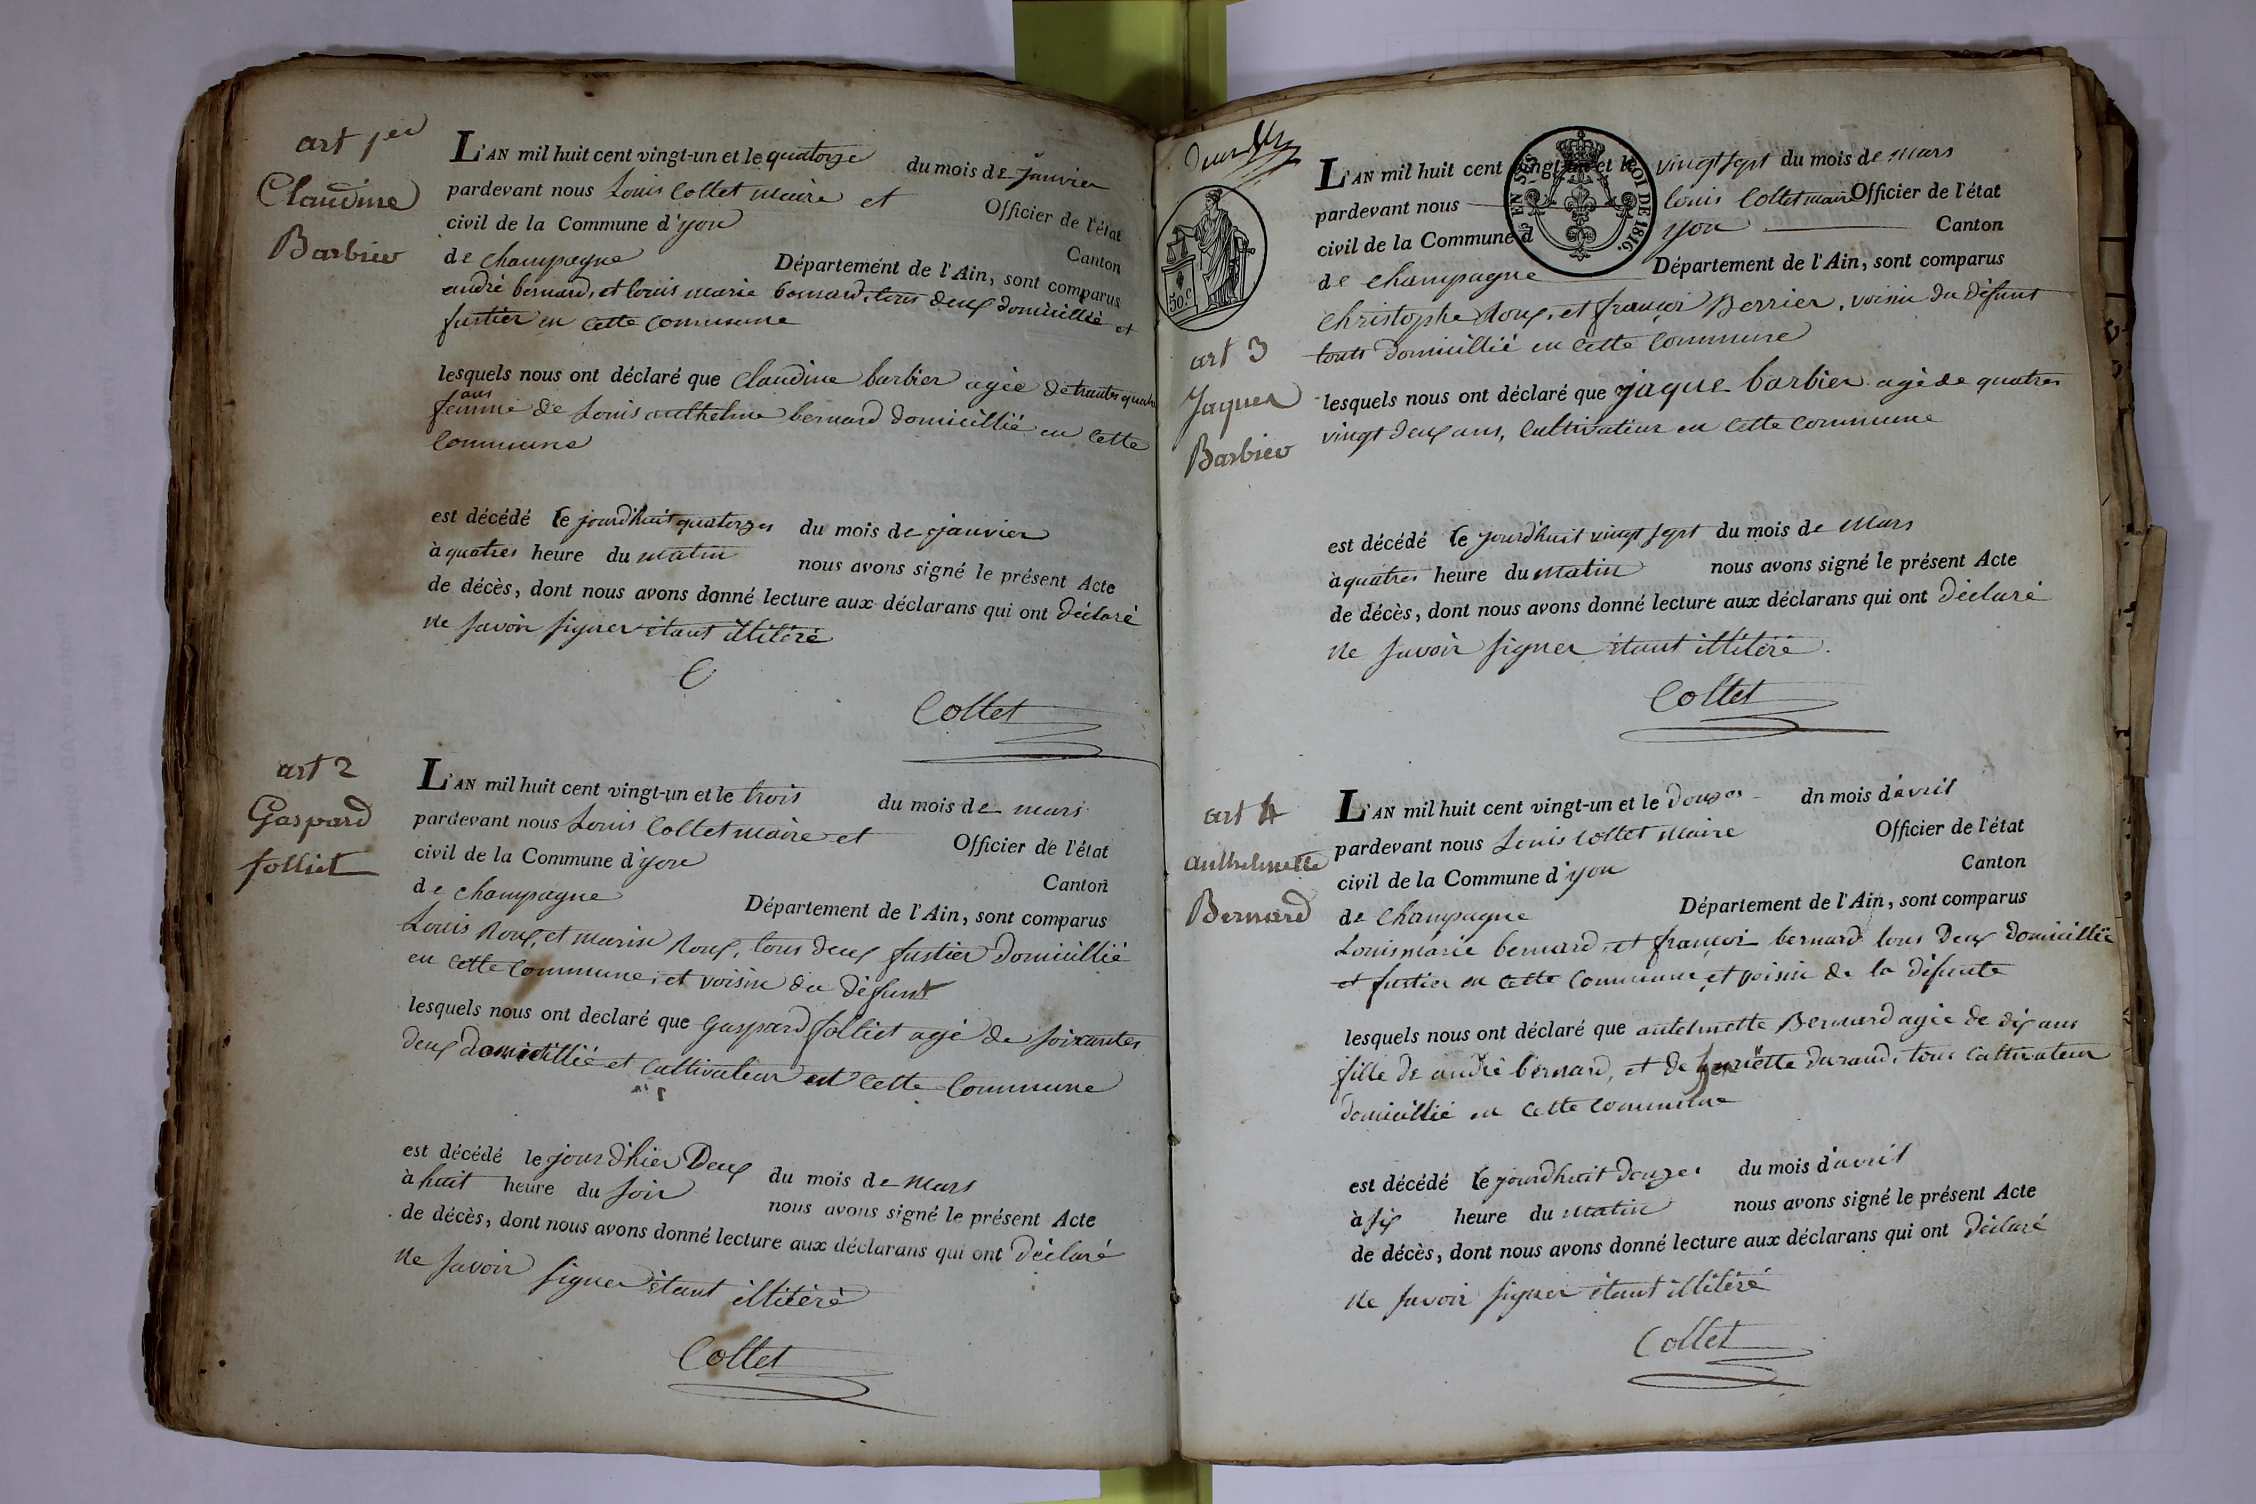 art 1er
Claudine
Barbier
L'AN mil huit cent vingt-un et le quatorze du mois de Janvier
pardevant nous Louis Collet maire et Officier de l'état
civil de la Commune d'yon Canton
de champagne Département de l'Ain, sont comparus
andré bernard, et louis marie bernard, tous deux domicillié et
fustier en cette commune
lesquels nous ont déclaré que Claudine barbier agée de trantes quatre
ans
femme de Louis anthelme bernard domicillié en cette
commune
est décédé le jourd'huit quatorzes du mois de janvier
à quatres heure du matin nous avons signé le présent Acte
de décès, dont nous avons donné lecture aux déclarans qui ont déclaré
ne savoir signer étant illitéré
Collet
art 2
Gaspard
folliet
L'AN mil huit cent vingt-un et le trois du mois de mars
pardevant nous Louis Collet maire et Officier de l'état
civil de la Commune d'yon Canton
de champagne Département de l'Ain, sont comparus
Louis Roux, et marin Roux, tous deux fustier domicillié
en cette commune, et voisin du défunt
lesquels nous ont declaré que Gaspard folliet agé de soixantes
deux domicillié et cultivateur en cette commune
est décédé le jour d'hier Deux du mois de mars
à huit heure du soir nous avons signé le présent Acte
de décès, dont nous avons donné lecture aux déclarans qui ont déclaré
ne savoir signer étant illitéré
Collet
Deux
EN SUS ROI DE 1816.
50 c
art 3
Jaques
Barbier
L'AN mil huit cent vingt-un et le vingt sept du mois de mars
pardevant nous louis Collet maire Officier de l'état
civil de la Commune d yon Canton
de champagne Département de l'Ain, sont comparus
christophe Roux, et françoi Berrier, voisin du défunt
touts domicillié en cette commune
lesquels nous ont déclaré que jaque barbier agé de quatres
vingt deux ans, cultivateur en cette commune
est décédé le jourdhuit vingt sept du mois de Mars
à quatres heure du matin nous avons signé le présent Acte
de décès, dont nous avons donné lecture aux déclarans qui ont déclaré
ne savoir signer étant illitéré.
Collet
art 4
anthelmette
Bernard
L'AN mil huit cent vingt-un et le douzes dn mois d'avril
pardevant nous Louis Collet maire Officier de l'état
civil de la Commune d'yon Canton
de Champagne Département de l'Ain, sont comparus
Louis marie bernard, et françoi bernard tous deux domicillié
et fustier en cette commune, et voisin de la défunte
lesquels nous ont déclaré que antelmette Bernard agée de dix ans
fille de andré bernard, et de henriëtte durand, tous cultivateur
domicillié en cette commune
est décédé le jourdhuit douzes du mois d'avril
à six heure du matin nous avons signé le présent Acte
de décès, dont nous avons donné lecture aux déclarans qui ont déclaré
ne savoir signer étant illitéré
Collet